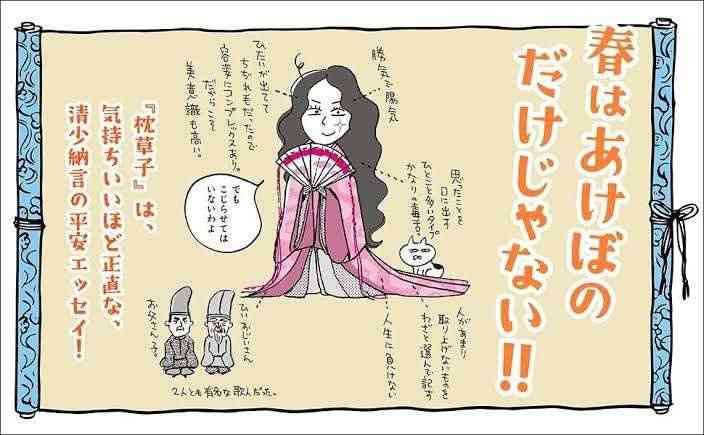 春はあけぼの
だけじゃない!!
勝気で陽気
ひたいが出てて
ちぢれ毛だったので
容姿にコンプレックスあり。
だからこそ
美意識も高い。
でも
こじらせては
いないわよ
思ったことを
口に出す
ひとこと多いタイプ。
かなりの毒舌。
人があまり
取り上げないものを
わざと選んで記す
人生に負けない
ひいおじいさん
お父さん
2人とも有名な歌人だった。
『枕草子』は、
気持ちいいほど正直な、
清少納言の平安エッセイ!